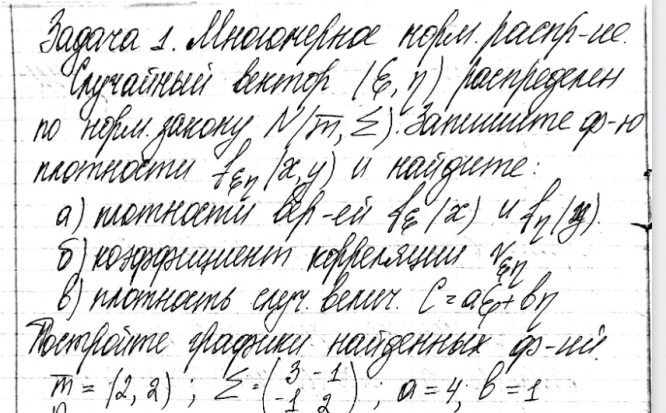 Задача 1. Многомерное норм. распр-ие.
Случайный вектор (ξ, η) распределен
по норм. закону N(m̅, Σ). Запишите ф-ю
плотности f_ξη (x, y) и найдите:
а) плотности вер-ей f_ξ (x) и f_η (y).
б) коэффициент корреляции r_ξη
в) плотность случ. велич. C = aξ + bη
Постройте графики найденных ф-ий.
m̅ = (2, 2) ; Σ = (3 -1
-1 2) ; a = 4; b = 1